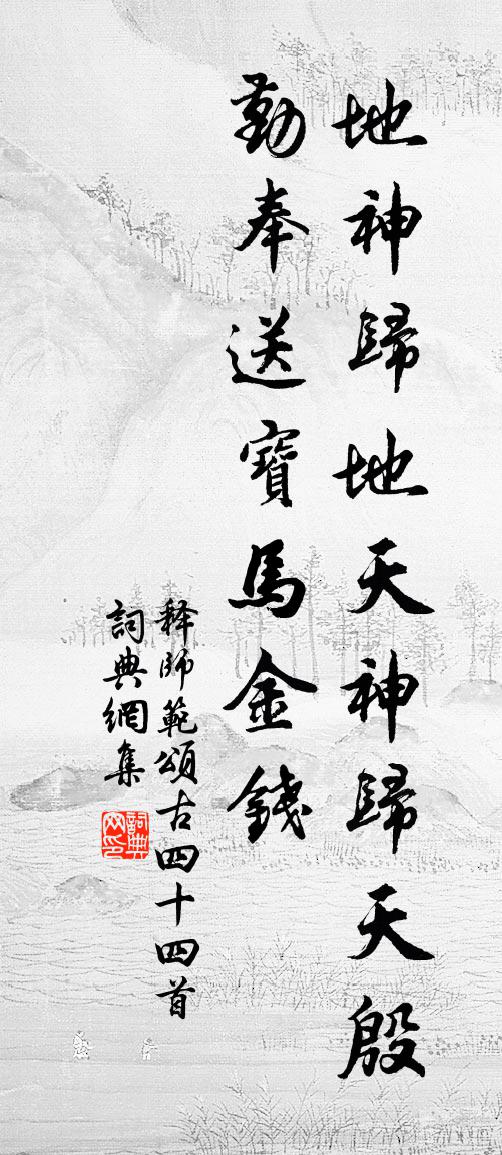 地神歸地天神歸天殷
勤奉送寶馬金錢
释師範頌古四十四首
詞典網集
詞典网印